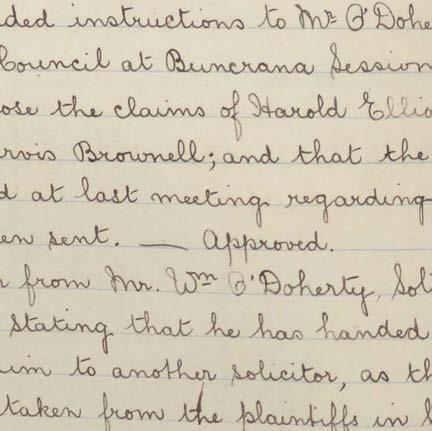 ded instructions to Mr O'Dohe
Council at Buncrana Session
ose the claims of Harold Ellio
rvis Brownell; and that the
d at last meeting regarding
en sent. — Approved.
from Mr. Wm O'Doherty, Sol
stating that he has handed
im to another solicitor, as th
taken from the plaintiffs in